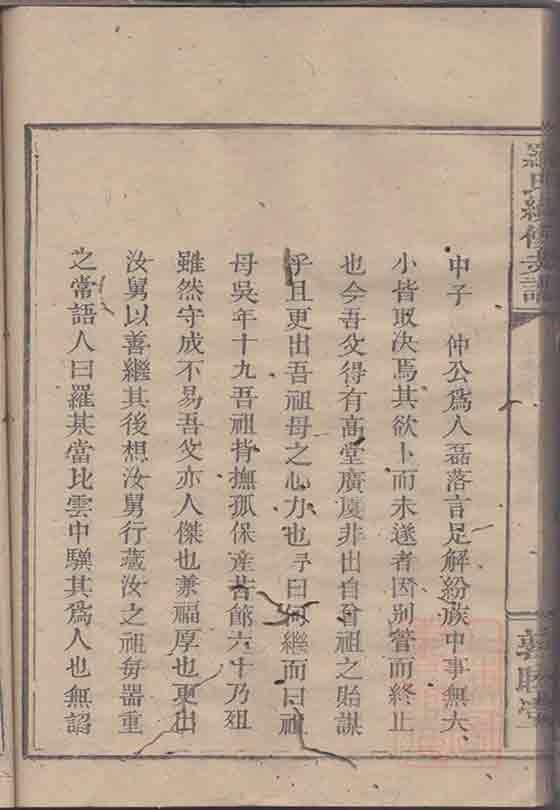 羅氏續修支譜
中子　仲公爲人磊落言足解紛族中事無大
小皆取決焉其欲卜而未遂者因別營而終止
也今吾父得有高堂廣廈非出自曾祖之貽謀
乎且更出吾祖母之心力也予曰何繼而曰祖
母吳年十九吾祖背撫孤保產苦節六十乃殂
雖然守成不易吾父亦人傑也兼福厚也更出
汝舅以善繼其後想汝舅行藏汝之祖毋器重
之常語人曰羅某當比雲中驥其爲人也無諂